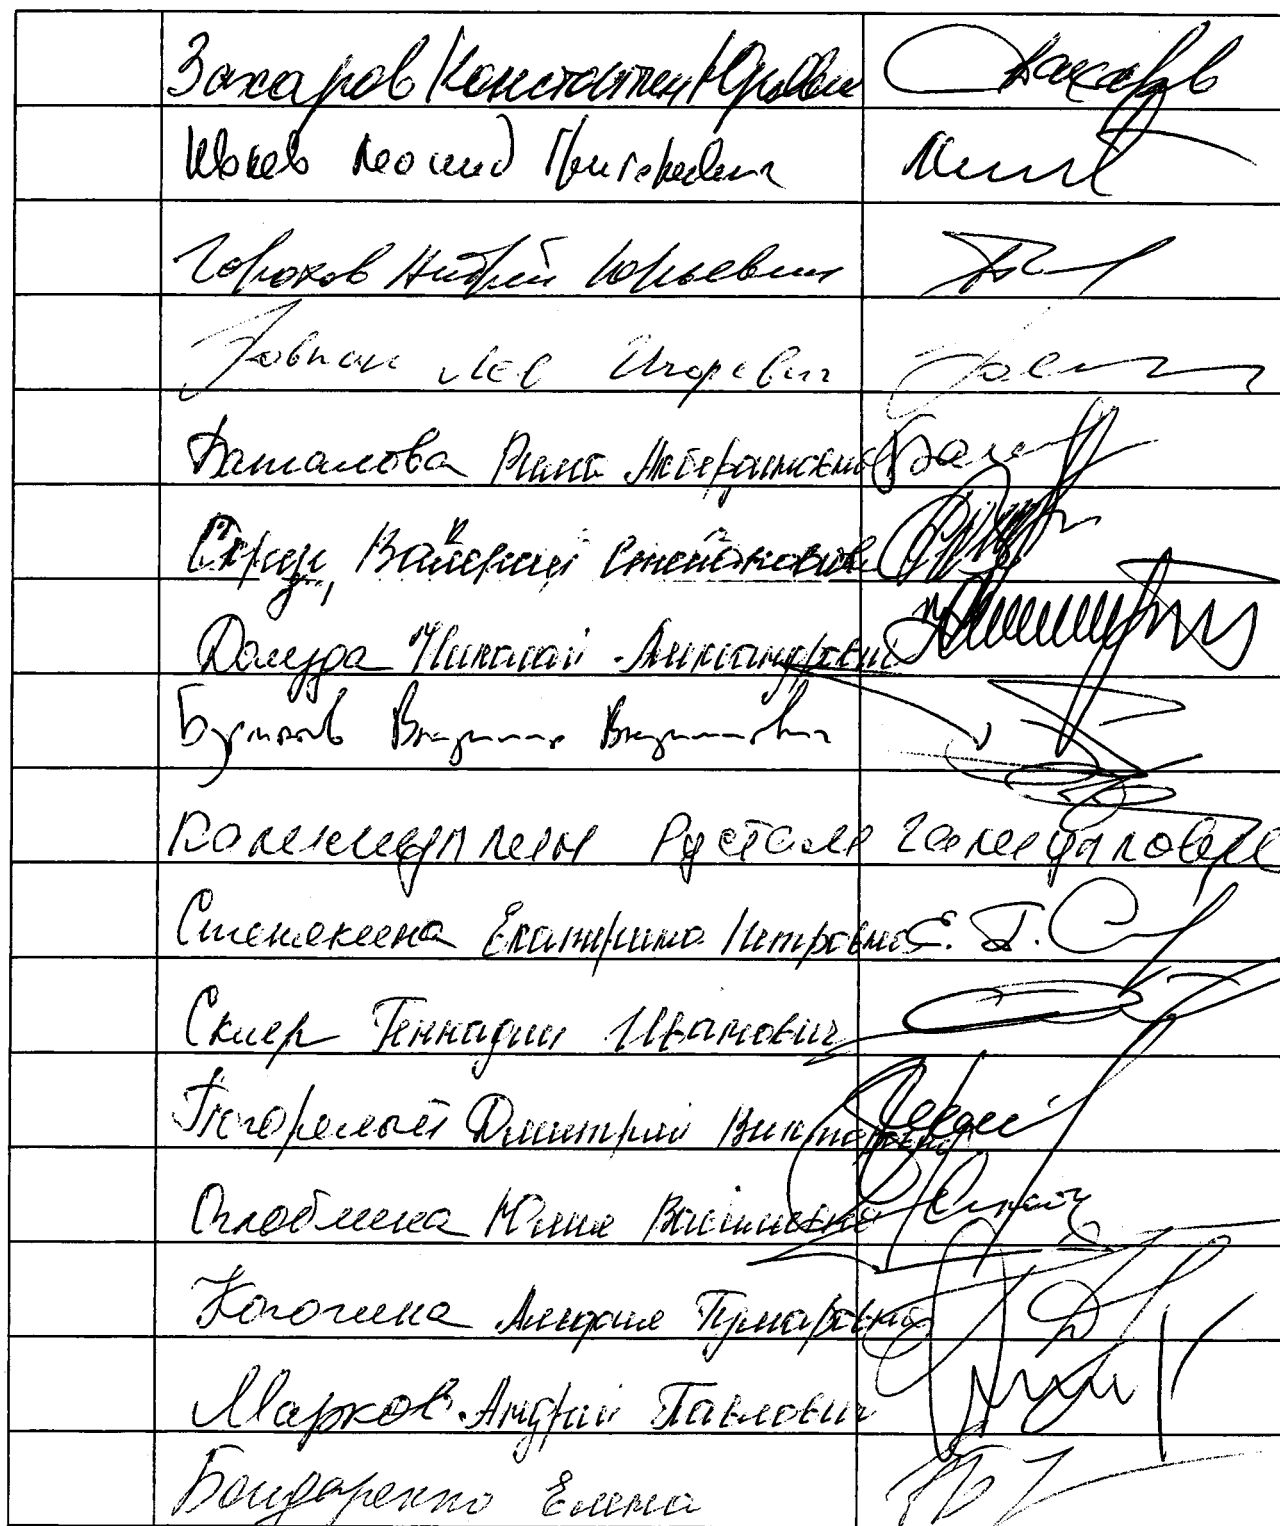 Захаров Константин Юрьевич Захаров
Ивлев Леонид Григорьевич
Горохов Андрей Юрьевич
Товпан Лев Игоревич
Баталова Рима
Скруг, Валерий Степанович
Долуда Николай Александрович
Бурматов Владимир Владимирович
Калимуллин Рустам Галиуллович
Стенякина Екатерина Петровна Е. П. С
Скляр Геннадий Иванович
Погорелый Дмитрий Викторович
Оглоблина Юлия Васильевна
Когогина Альфия Гумаровна
Марков Андрей Павлович
Бондаренко Елена